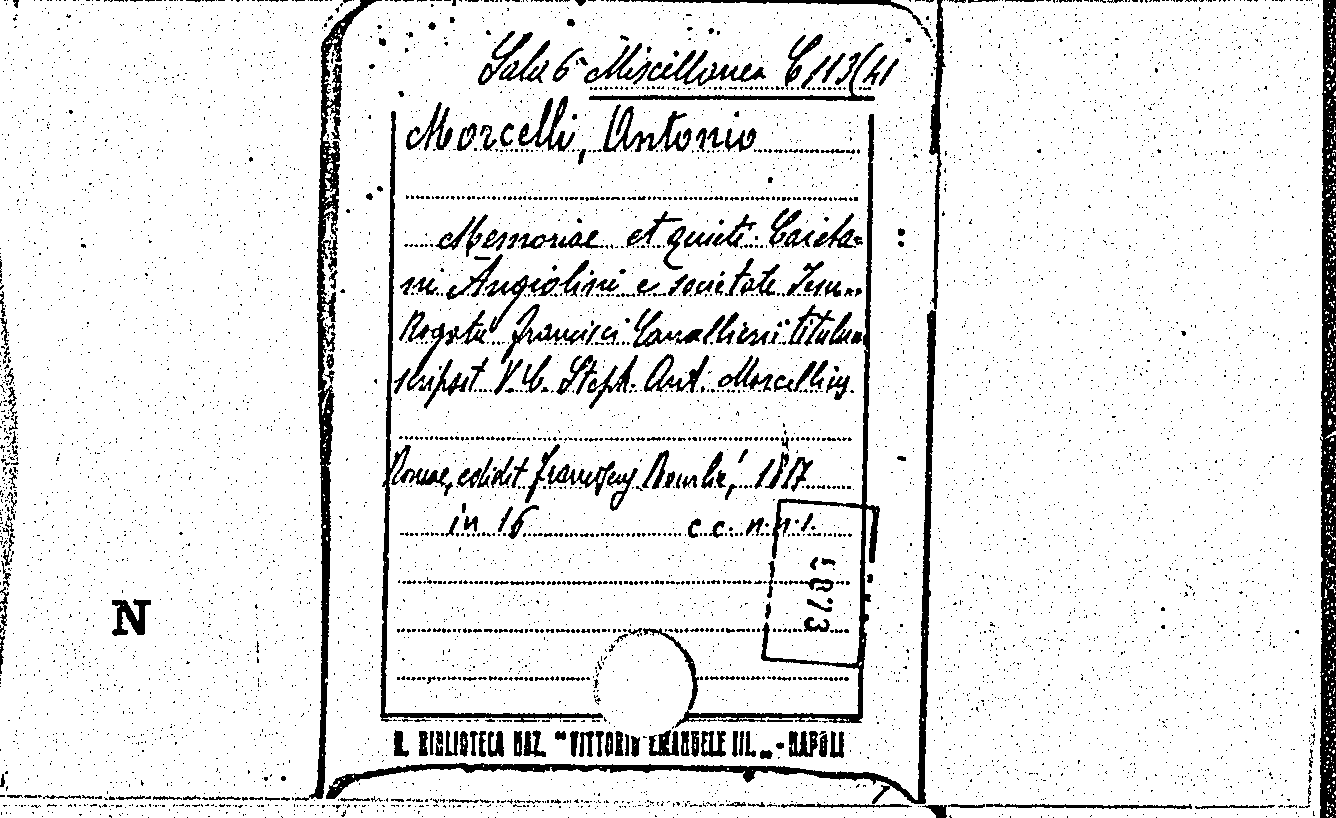 Sala 6ª Miscellanea C 113(41
Morcelli, Antonio
Memoriae et quieti Caieta-
ni Angiolini e societate Jesu..
Rogatu francisci Cavallierii titulum
scripsit V. C. Steph. Ant. Morcellius.
Romae, edidit franciscus Bourlié, 1817
in 16 c. c. n. n. 1.
N
R. BIBLIOTECA NAZ. "VITTORIO EMANUELE III.„ - NAPOLI